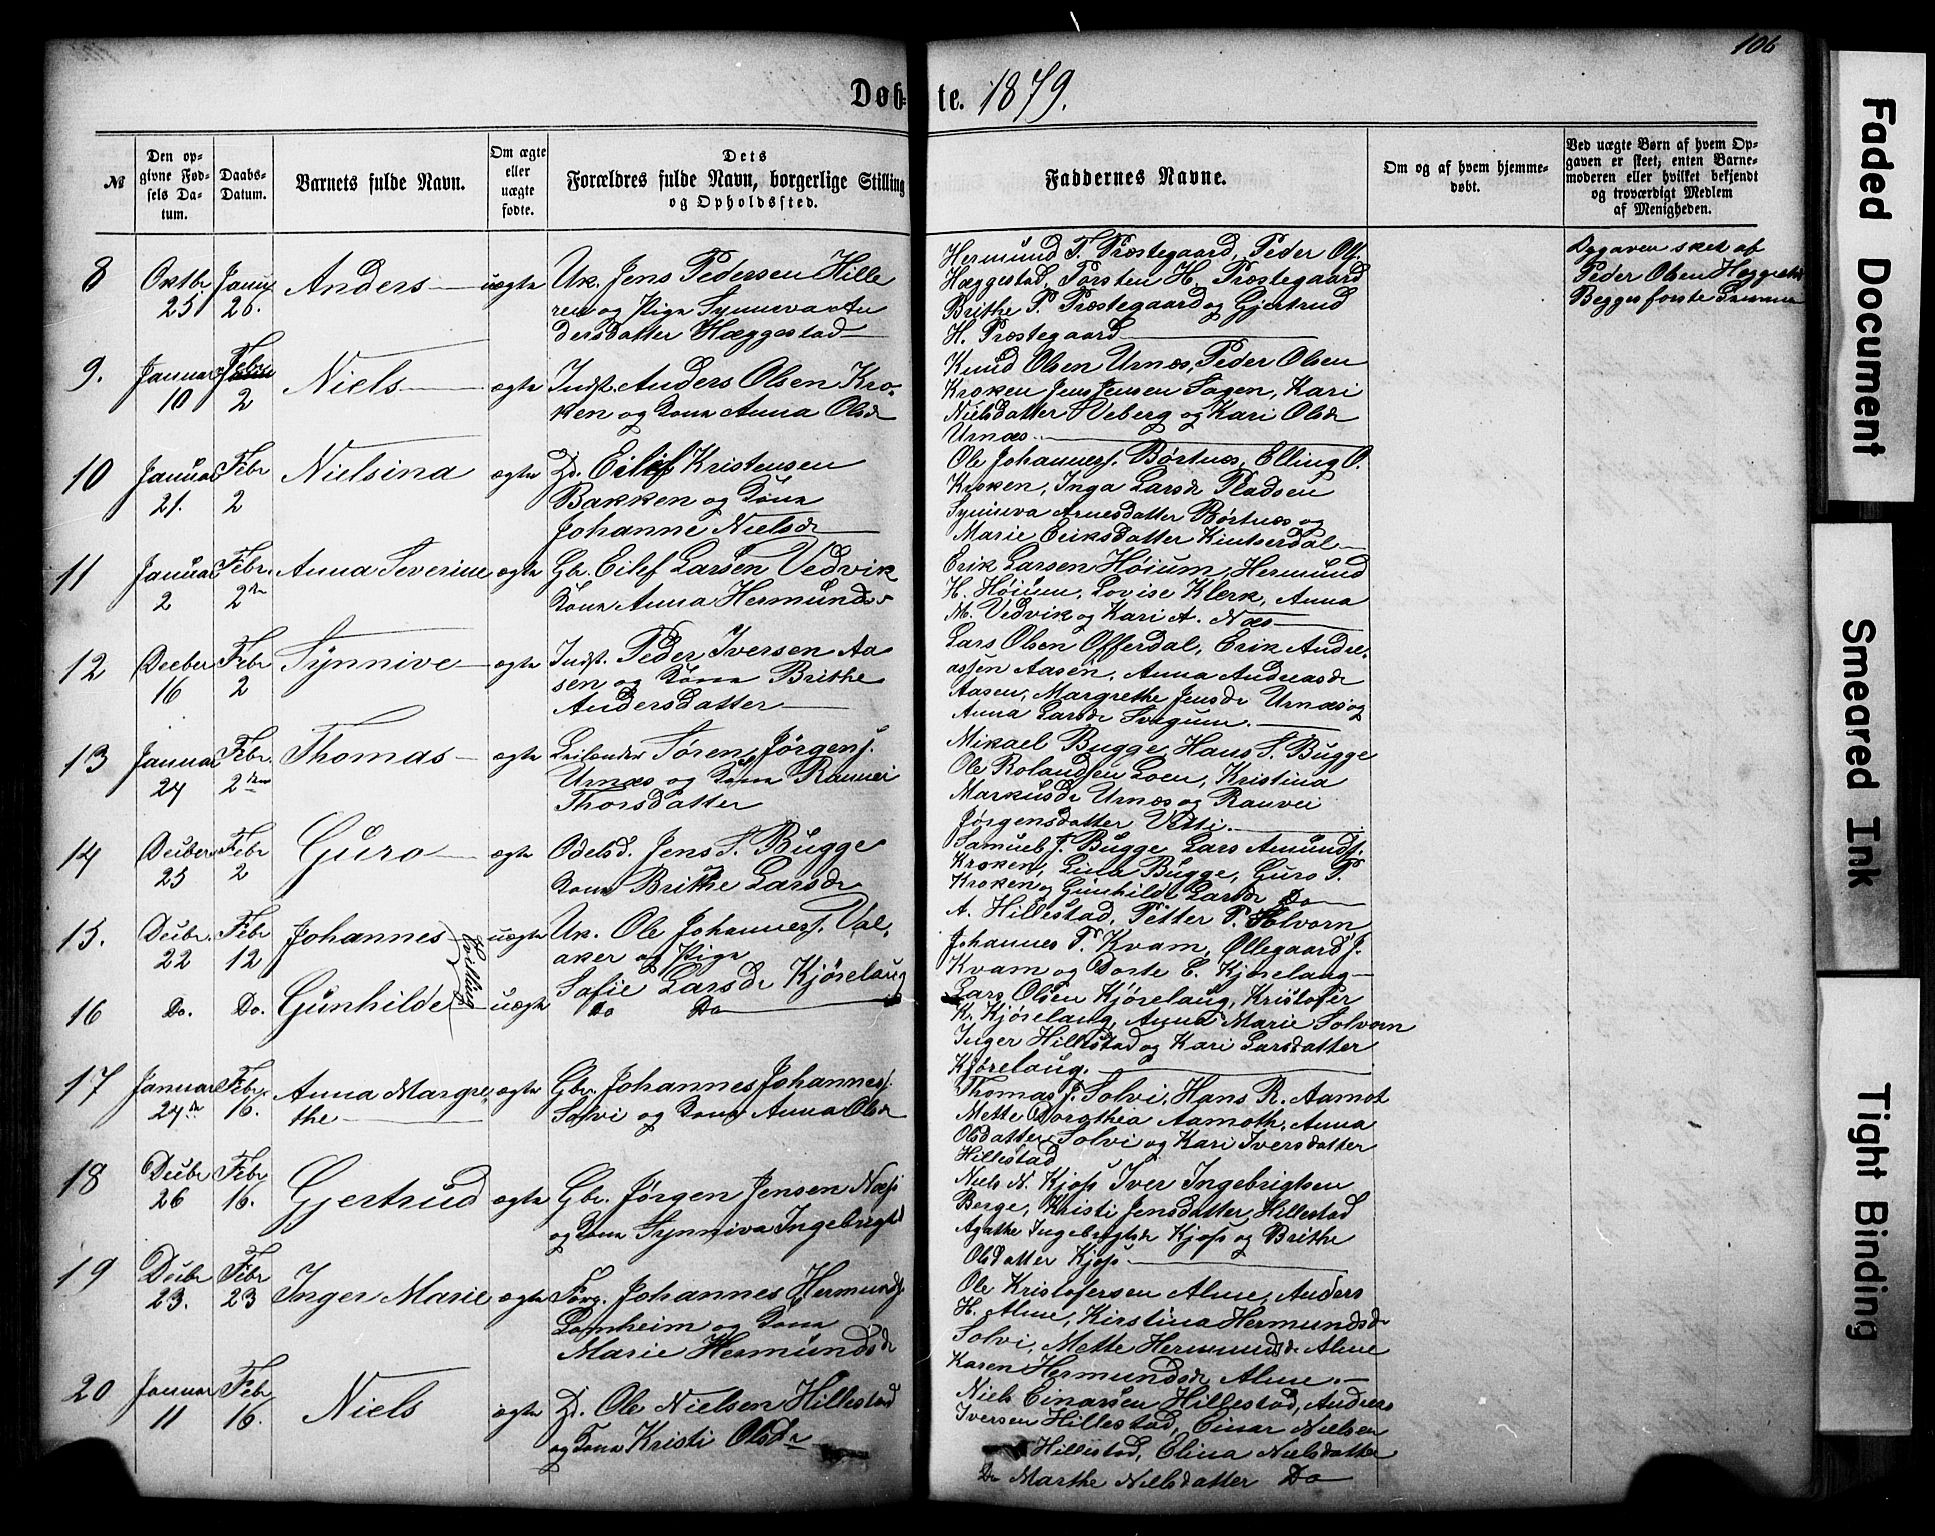 106
Døb- te. 1879.
№
Den op-
givne Fød-
sels Da-
tum.
Daabs-
Datum.
Barnets fulde Navn.
Om ægte
eller
uægte
fødte.
Dets
Forældres fulde Navn, borgerlige Stilling
og Opholdssted.
Faddernes Navne.
Om og af hvem hjemme-
døbt.
Ved uægte Børn af hvem Op-
gaven er skeet; enten Barne-
moderen eller hvilket bekjendt
og troværdigt Medlem
af Menigheden.
8
Oktbr
25
Janu
26.
Anders
uægte
Uk. Jens Pedersen Hille
ren og Pige Synneva An
dersdatter Hæggestad
Hermund T. Præstegaard, Peder Ols.
Hæggestad, Torsten H. Præstegaard
Brithe P. Præstegaard og Gjertrud
H. Præstegaard
Opgaven sket af
Peder Olsen Heggestad
Begges første Lejermaal
9.
Januar
10
Febr
2
Niels
ægte
Indst. Anders Olsen Kro-
ken og Kone Anna Olsdr
Knud Olsen Urnæs, Peder Olsen
Kroken Jens Jensen Hagen, Kari
Nielsdatter Veberg og Kari Olsdr
Urnæs
10
Januar
21.
Febr
2
Nielsina
ægte
Gd. Eilif Kristensen
Bakken og Kone
Johanne Nielsdr
Ole Johanness. Børtnæs, Elling O.
Kroken, Inga Larsdr Pladsen
Synneva Arnesdatter Børtnæs og
Marie Eriksdatter Kintserdal
11
Januar
2
Febr.
2den
Anna Severine
ægte
Gbr. Eilef Larsen Vedvik
Kone Anna Hermundsdr
Erik Larsen Høium, Hermund
H. Høium, Lovise Klerk, Anna
M. Vedvik og Kari A. Næs
12
Deeber
16
Febr
2
Synnive
ægte
Indst. Peder Iversen Aa
sen og Kone Brithe
Andersdatter
Lars Olsen Offerdal, Erik Andre-
assen Aasen, Anna Andreasdr
Aasen, Margrethe Jensdr Urnæs og
Anna Larsdr Svegum.
13
Januar
24
Febr.
2den
Thomas
ægte
Leilender Søren Jørgens.
Urnæs og Kone Rannei
Thorsdatter
Mikael Bugge, Hans S. Bugge
Ole Rolandsen Loen, Kristina
Markusdr Urnæs og Ranvei
Jørgensdatter Vetti.
14
Deeber
25
Febr
2
Guro
ægte
Odelsd. Jens S. Bugge
Kone Brithe Larsdr
Samuel J. Bugge Lars Amunds.
Kroken, Lina Bugge, Guro P.
Kroken og Gunhilde Larsdr Do
15.
Deebr.
22
Febr
12
Johannes
Tvilling
uægte
Uk. Ole Johanness. Val-
aker og Pige
Sofie Larsdr Kjørelaug
A. Hillestad. Petter P. Solvorn
Johannes P. Kvam, Ollegaard J.
Kvam og Dorte E. Kjørelaug
16
Do.
Do.
Gunhilde
uægte
Do Do
Lars Olsen Kjørelaug, Kristofer
K. Kjørelaug, Anna Marie Solvorn
Inger Hillestad og Kari Larsdatter
Kjørelaug.
17
Januar
24de
Febr.
16.
Anna Margre-
the
ægte
Gbr. Johannes Johanness.
Solvi og Kone Anna Olsdr
Thomas J. Solvi, Hans R. Aamot
Mette Dorothea Aamoth, Anna
Olsdatter Solvi og Kari Iversdatter
Hillestad
18
Deebr
26
Febr
16.
Gjertrud
ægte
Gbr. Jørgen Jensen Næss
og Kone Synniva Ingebrigtsd
Niels N. Kjøs Iver Ingebrigtsen
Berge, Kristi Jensdatter Hillestad
Agathe Ingebrigtsdr Kjøs og Brithe
Olsdatter Kjøs
19
Deebr
23.
Febr
23
Inger Marie
ægte
Forp. Johannes Hermunds.
Lomheim og Kone
Marie Hermundsdr
Ole Kristofersen Alme, Anders
H. Alme, Kirstina Hermundsdr
Solvi, Mette Hermundsdr Alme
Karen Hermundsdr Alme.
20
Januar
11
Febr
16.
Niels
ægte
Gd. Ole Nielsen Hillestad
og Kone Kristi Olsdr
Niels Einarsen Hillestad, Anders
Iversen Hillestad, Einar Nielsen
Hillestad, Elina Nielsdatter
Do Marthe Nielsdatter Do
Faded Document
Smeared Ink
Tight Binding